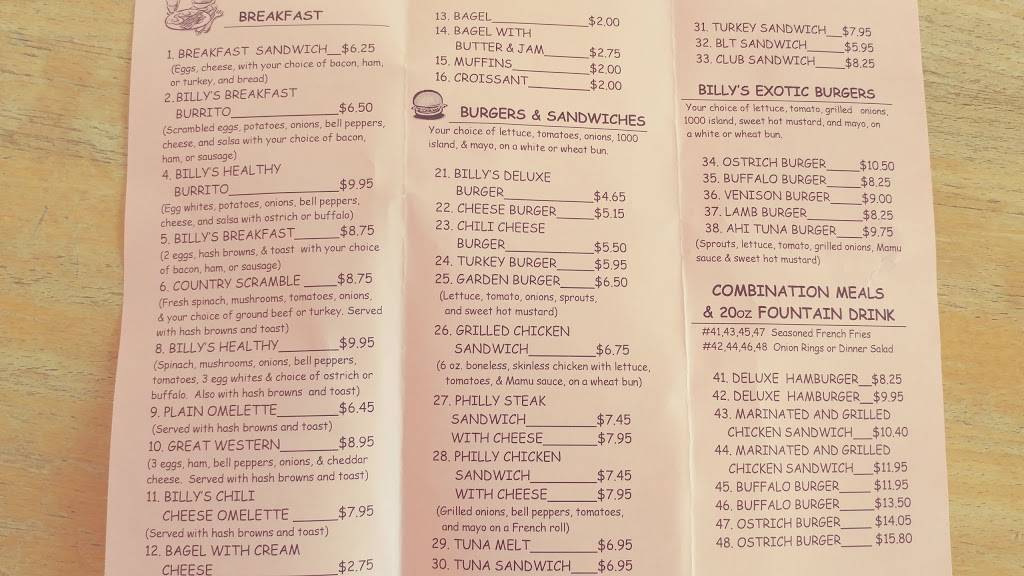 BREAKFAST
1. BREAKFAST SANDWICH__$6.25
(Eggs, cheese, with your choice of bacon, ham,
or turkey, and bread)
2. BILLY'S BREAKFAST
BURRITO____________$6.50
(Scrambled eggs, potatoes, onions, bell peppers,
cheese, and salsa with your choice of bacon,
ham, or sausage)
4. BILLY'S HEALTHY
BURRITO____________$9.95
(Egg whites, potatoes, onions, bell peppers,
cheese, and salsa with ostrich or buffalo)
5. BILLY'S BREAKFAST_____$8.75
(2 eggs, hash browns, & toast with your choice
of bacon, ham, or sausage)
6. COUNTRY SCRAMBLE ____$8.75
(Fresh spinach, mushrooms, tomatoes, onions,
& your choice of ground beef or turkey. Served
with hash browns and toast)
8. BILLY'S HEALTHY_______$9.95
(Spinach, mushrooms, onions, bell peppers,
tomatoes, 3 egg whites & choice of ostrich or
buffalo. Also with hash browns and toast)
9. PLAIN OMELETTE_______$6.45
(Served with hash browns and toast)
10. GREAT WESTERN_______$8.95
(3 eggs, ham, bell peppers, onions, & cheddar
cheese. Served with hash browns and toast)
11. BILLY'S CHILI
CHEESE OMELETTE _____$7.95
(Served with hash browns and toast)
12. BAGEL WITH CREAM
CHEESE____________$2.75
13. BAGEL____________$2.00
14. BAGEL WITH
BUTTER & JAM______$2.75
15. MUFFINS__________$2.00
16. CROISSANT________$2.00
BURGERS & SANDWICHES
Your choice of lettuce, tomatoes, onions, 1000
island, & mayo, on a white or wheat bun.
21. BILLY'S DELUXE
BURGER___________$4.65
22. CHEESE BURGER_____$5.15
23. CHILI CHEESE
BURGER___________$5.50
24. TURKEY BURGER_____$5.95
25. GARDEN BURGER____$6.50
(Lettuce, tomato, onions, sprouts,
and sweet hot mustard)
26. GRILLED CHICKEN
SANDWICH________$6.75
(6 oz. boneless, skinless chicken with lettuce,
tomatoes, & Mamu sauce, on a wheat bun)
27. PHILLY STEAK
SANDWICH________$7.45
WITH CHEESE______$7.95
28. PHILLY CHICKEN
SANDWICH________$7.45
WITH CHEESE______$7.95
(Grilled onions, bell peppers, tomatoes,
and mayo on a French roll)
29. TUNA MELT________$6.95
30. TUNA SANDWICH___$6.95
31. TURKEY SANDWICH__$7.95
32. BLT SANDWICH_____$5.95
33. CLUB SANDWICH____$8.25
BILLY'S EXOTIC BURGERS
Your choice of lettuce, tomato, grilled onions,
1000 island, sweet hot mustard, and mayo, on
a white or wheat bun.
34. OSTRICH BURGER____$10.50
35. BUFFALO BURGER____$8.25
36. VENISON BURGER___$9.00
37. LAMB BURGER_______$8.25
38. AHI TUNA BURGER___$9.75
(Sprouts, lettuce, tomato, grilled onions, Mamu
sauce & sweet hot mustard)
COMBINATION MEALS
& 20oz FOUNTAIN DRINK
#41,43,45,47 Seasoned French Fries
#42,44,46,48 Onion Rings or Dinner Salad
41. DELUXE HAMBURGER__$8.25
42. DELUXE HAMBURGER__$9.95
43. MARINATED AND GRILLED
CHICKEN SANDWICH___$10.40
44. MARINATED AND GRILLED
CHICKEN SANDWICH___$11.95
45. BUFFALO BURGER_____$11.95
46. BUFFALO BURGER_____$13.50
47. OSTRICH BURGER_____$14.05
48. OSTRICH BURGER_____$15.80